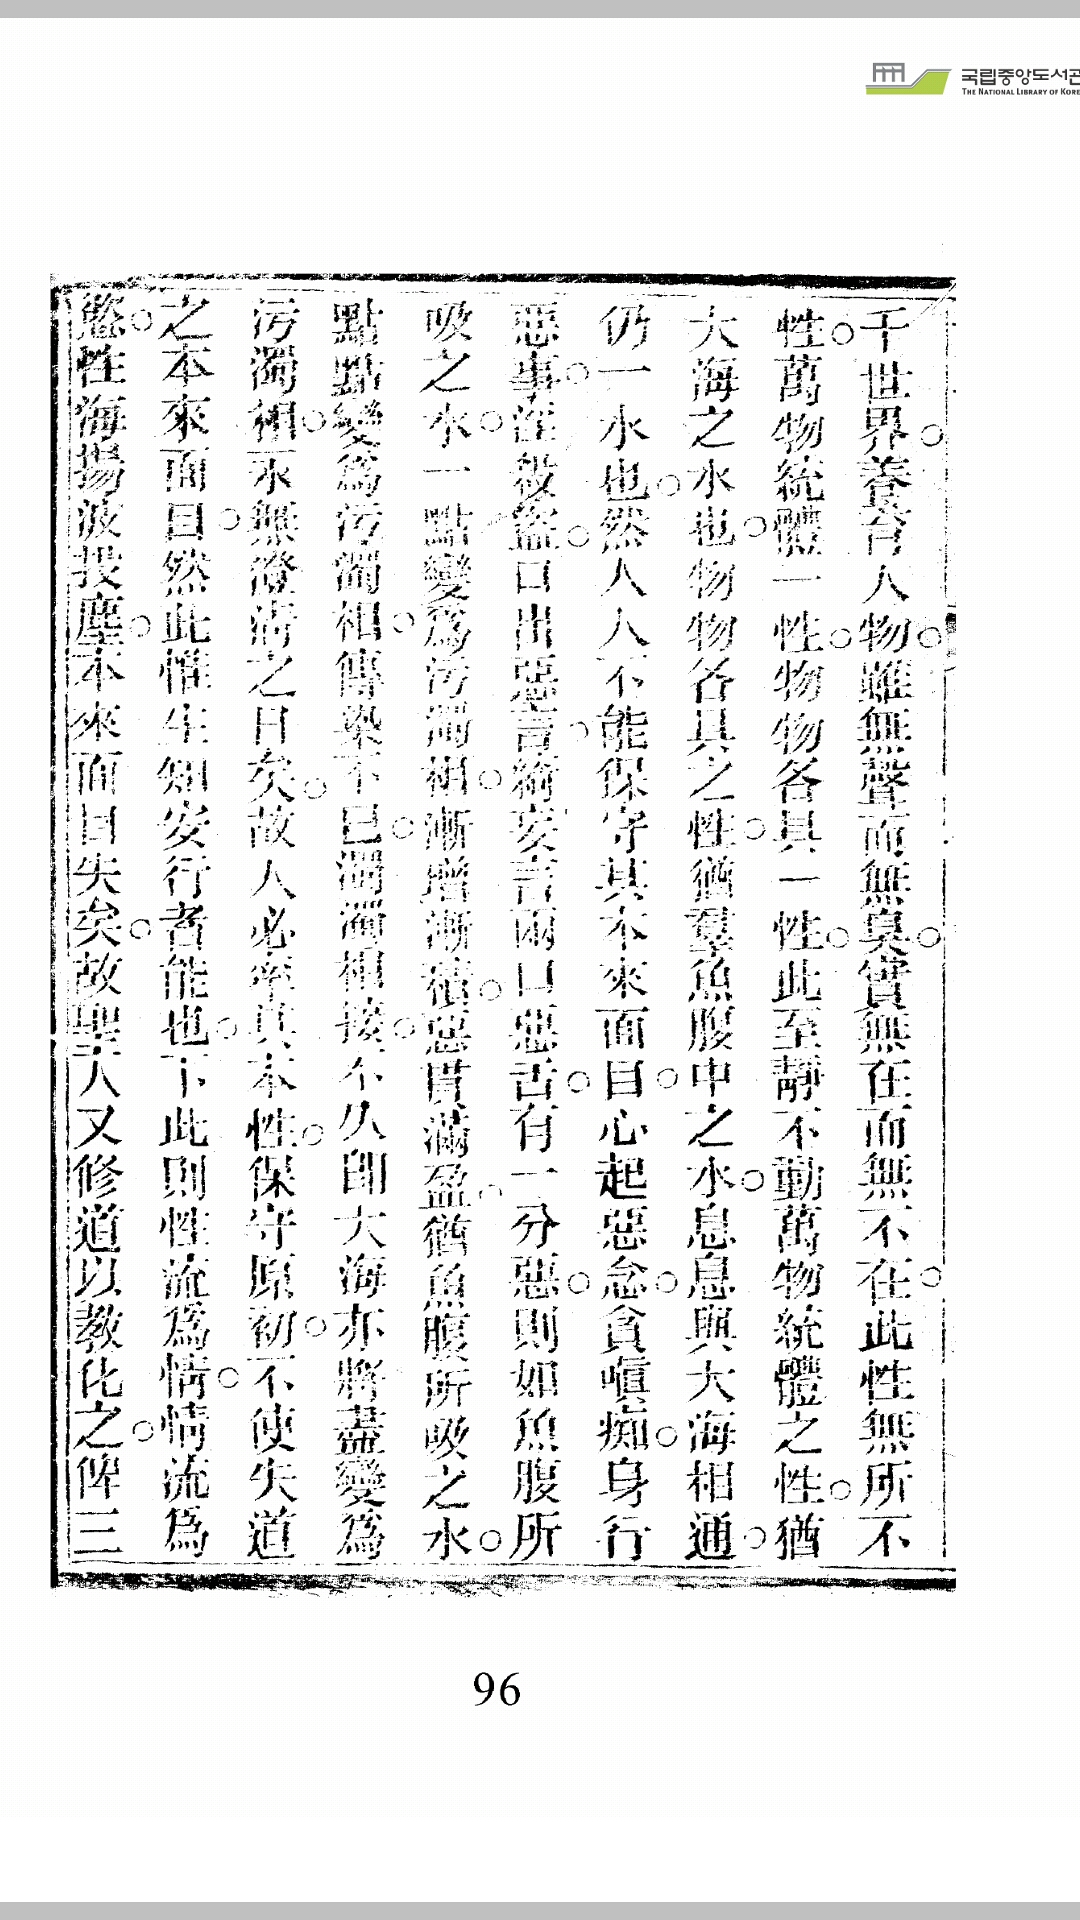 국립중앙도서관
THE NATIONAL LIBRARY OF KOREA
千世界○養育人物○雖無聲而無臭○實無在而無不在○此性無所不
性○萬物統體一性○物物各具一性○此至靜不動萬物統體之性○猶
大海之水也○物物各具之性○猶羣魚腹中之水○息息與大海相通○
仍一水也○然人人不能保守其本來面目○心起惡念○貪嗔痴○身行
惡事○淫殺盜○口出惡言○綺妄言兩口惡舌○有一分惡○則如魚腹所
吸之水○一點變爲污濁相○漸增漸積○惡貫滿盈○猶魚腹所吸之水○
點點變爲污濁相○傳染不已○濁濁相接○不久卽大海亦將盡變爲
污濁相○永無澄清之日矣○故人必率其本性○保守原初○不使失道
之本來面目○然此惟生知安行者能也○下此則性流爲情○情流爲
慾○性海揚波投塵○本來面目失矣○故聖人又修道以教化之○俾三
96